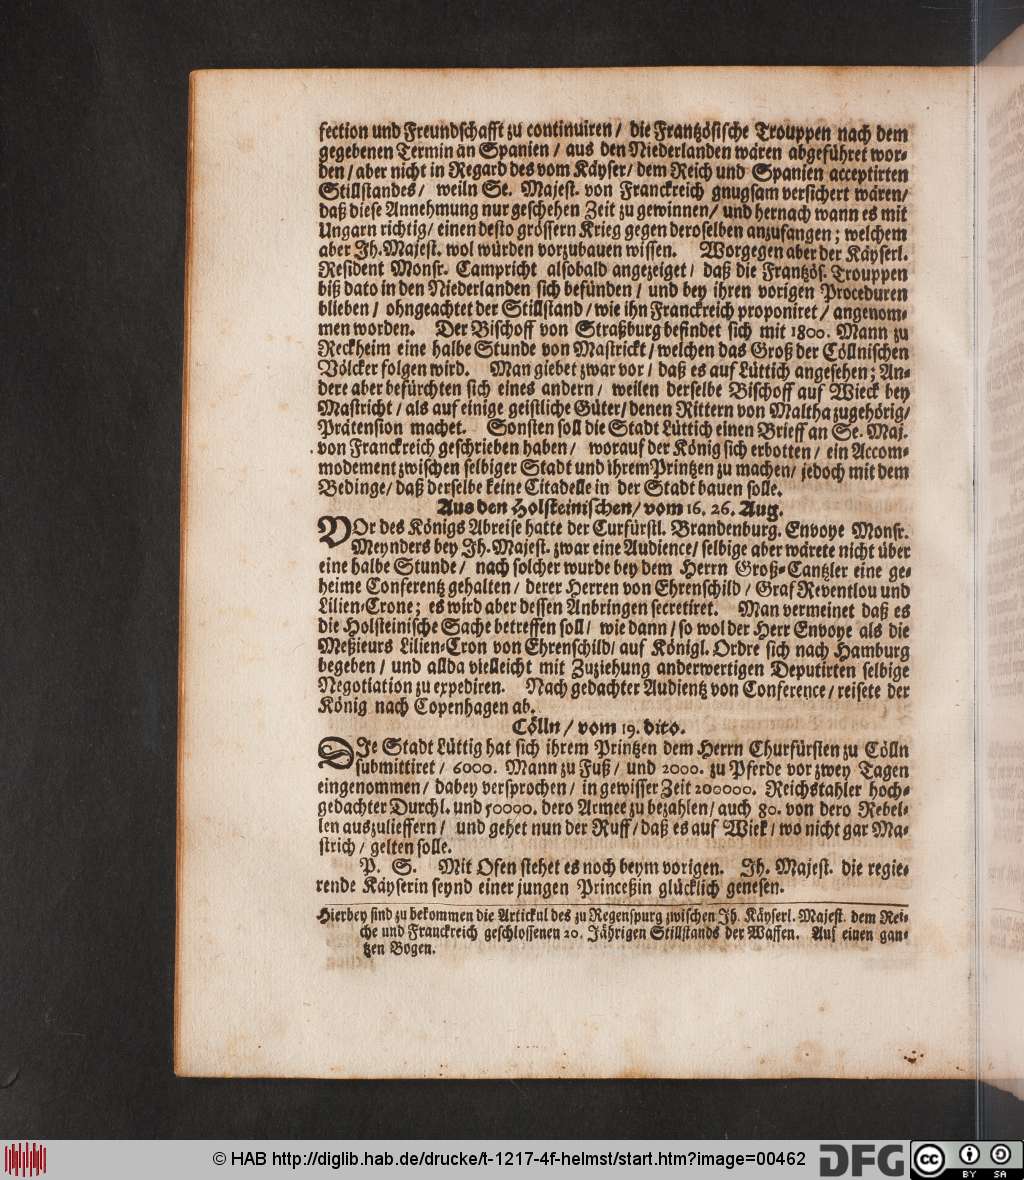 fection und Freundschafft zu continuiren / die Frantzösische Trouppen nach dem
gegebenen Termin an Spanien / aus den Niederlanden wären abgeführet wor-
den / aber nicht in Regard des vom Käyser / dem Reich und Spanien acceptirten
Stillstandes / weiln Se. Majest. von Franckreich gnugsam versichert wären /
daß diese Annehmung nur geschehen Zeit zu gewinnen / und hernach wann es mit
Ungarn richtig / einen desto grössern Krieg gegen deroselben anzufangen ; welchem
aber Ih. Majest. wol würden vorzubauen wissen. Worgegen aber der Käyserl.
Resident Monsr. Campricht alsobald angezeiget / daß die Frantzös. Trouppen
biß dato in den Niederlanden sich befünden / und bey ihren vorigen Proceduren
blieben / ohngeachtet der Stillstand / wie ihn Franckreich proponiret / angenom-
men worden. Der Bischoff von Straßburg befindet sich mit 1800. Mann zu
Reckheim eine halbe Stunde von Mastrickt / welchen das Groß der Cöllnischen
Völcker folgen wird. Man giebet zwar vor / daß es auf Lüttich angesehen ; An-
dere aber befürchten sich eines andern / weilen derselbe Bischoff auf Wieck bey
Mastricht / als auf einige geistliche Güter / denen Rittern von Maltha zugehörig /
Prätension machet. Sonsten soll die Stadt Lüttich einen Brieff an Se. Maj.
von Franckreich geschrieben haben / worauf der König sich erbotten / ein Accom-
modement zwischen selbiger Stadt und ihrem Printzen zu machen / jedoch mit dem
Bedinge / daß derselbe keine Citadelle in der Stadt bauen solle.
Aus den Holsteinischen / vom 16. 26. Aug.
VOr des Königs Abreise hatte der Curfürstl. Brandenburg. Envoye Monsr.
Meynders bey Ih. Majest. zwar eine Audience / selbige aber wärete nicht über
eine halbe Stunde / nach solcher wurde bey dem Herrn Groß-Cantzler eine ge-
heime Conferentz gehalten / derer Herren von Ehrenschild / Graf Reventlou und
Lilien-Crone ; es wird aber dessen Anbringen secretiret. Man vermeinet daß es
die Holsteinische Sache betreffen soll / wie dann / so wol der Herr Envoye als die
Meßieurs Lilien-Cron von Ehrenschild / auf Königl. Ordre sich nach Hamburg
begeben / und allda vielleicht mit Zuziehung anderwertigen Deputirten selbige
Negotiation zu expediren. Nach gedachter Audientz von Conference / reisete der
König nach Copenhagen ab.
Cölln / vom 19. dito.
DIe Stadt Lüttig hat sich ihrem Printzen dem Herrn Churfürsten zu Cölln
submittiret / 6000. Mann zu Fuß / und 2000. zu Pferde vor zwey Tagen
eingenommen / dabey versprochen / in gewisser Zeit 200000. Reichstahler hoch-
gedachter Durchl. und 50000. dero Armee zu bezahlen / auch 80. von dero Rebel-
len auszulieffern / und gehet nun der Ruff / daß es auf Wiek / wo nicht gar Ma-
strich / gelten solle.
P. S. Mit Ofen stehet es noch beym vorigen. Ih. Majest. die regie-
rende Käyserin seynd einer jungen Princeßin glücklich genesen.
Hierbey sind zu bekommen die Artickul des zu Regenspurg zwischen Ih. Käyserl. Majest. dem Rei-
che und Franckreich geschlossenen 20. Jährigen Stillstands der Waffen. Auf einen gan-
tzen Bogen.
© HAB http://diglib.hab.de/drucke/t-1217-4f-helmst/start.htm?image=00462
DFG
cc BY SA